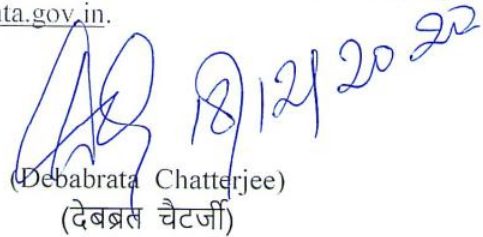 ta.gov.in.
18/12/2020
(Debabrata Chatterjee)
(देबब्रत चैटर्जी)